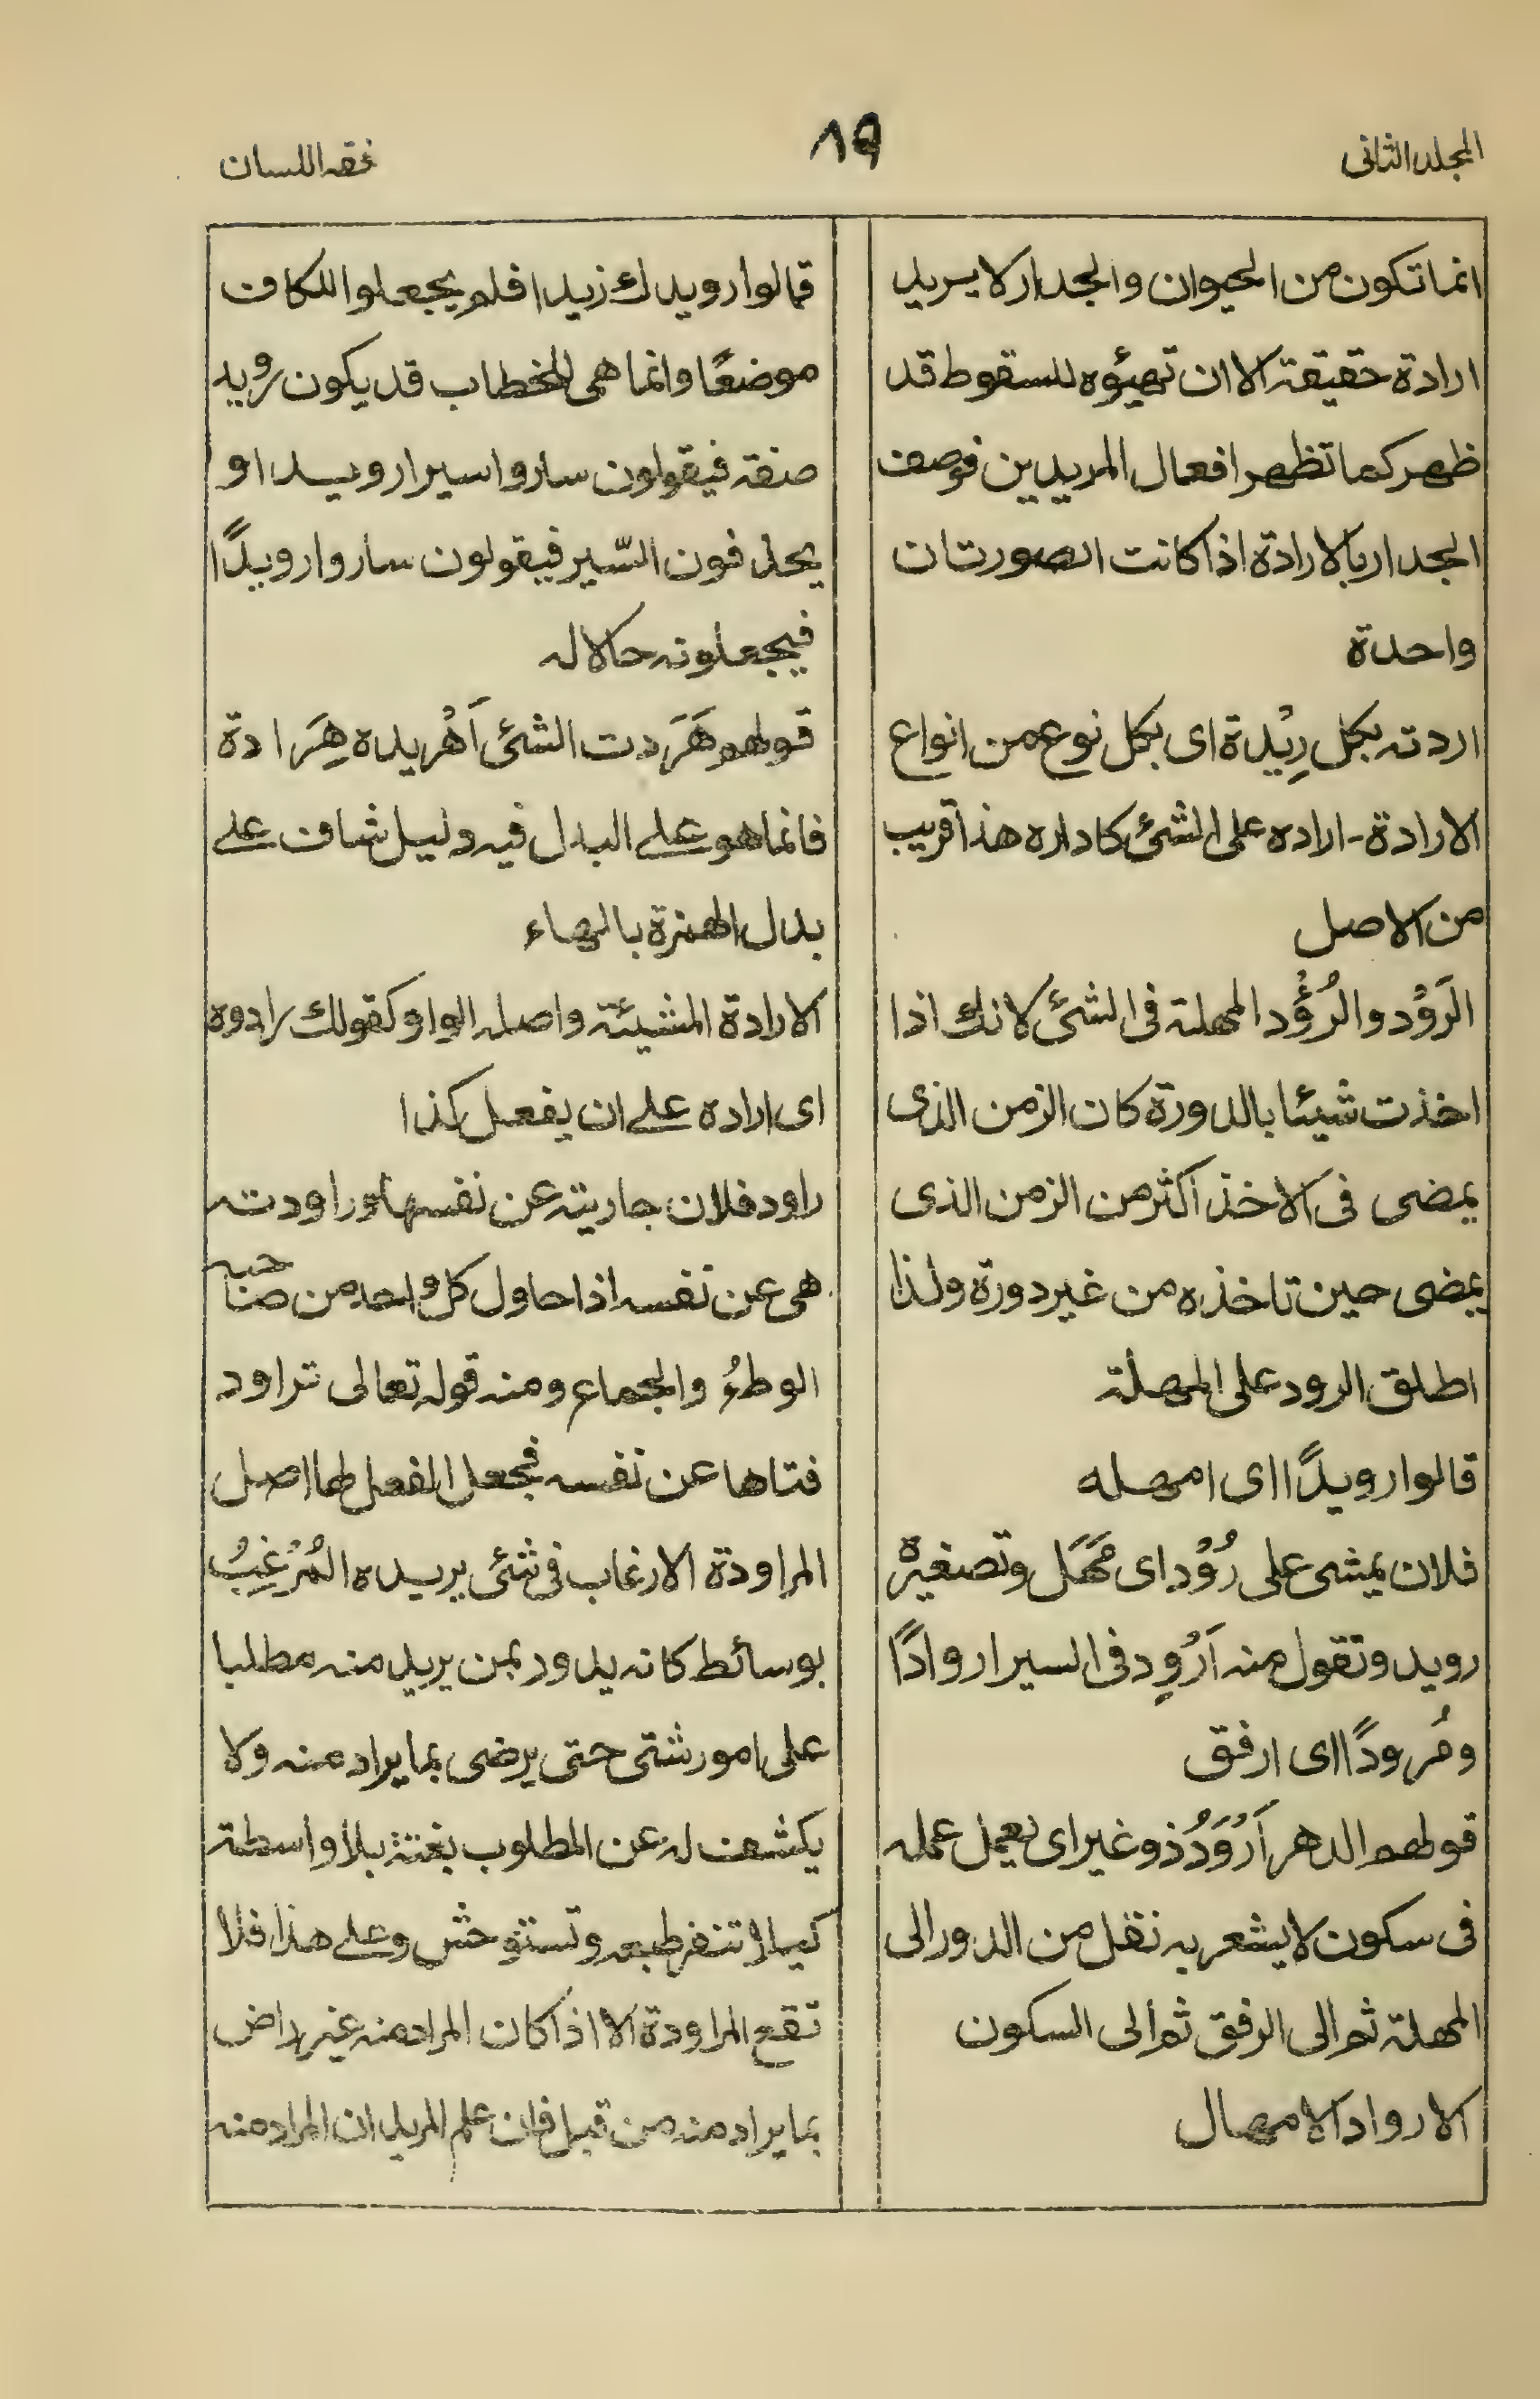 المجلد الثانى
٨٩
فقه اللسان
انما تكون من الحيوان والجدار لا يريد
ارادة حقيقة الا ان تهيؤه للسقوط قد
ظهر كما تظهر افعال المريدين فوصف
الجدار بالارادة اذا كانت الصورتان
واحدة
اردته بكل رِيْدة اى بكل نوع من انواع
الارادة - اراده على الشئ كاداره هذا قريب
من الاصل
الرَوْد والرُؤْد المهلة فى الشئ لانك اذا
اخذت شيئا بالدورة كان الزمن الذى
يمضى فى الاخذ اكثر من الزمن الذى
يمضى حين تاخذه من غير دورة ولذا
اطلق الرود على المهلة
قالوا رويدًا اى امهله
فلان يمشى على رُوْد اى مَهَل وتصغيرة
رويد وتقول منه اَرْوِد فى السير اروادًا
ومُرودًا اى ارفق
قولهم الدهر اَرْوَدُ ذو غير اى يعمل عمله
فى سكون لا يشعر به نقل من الدور الى
المهلة ثم الى الرفق ثم الى السكون
الارواد الامهال
قالوا رويدك زيدا فلم يجعلوا للكاف
موضعًا وانما هى للخطاب قد يكون رويد
صفة فيقولون ساروا سيرا رويدا او
يحذفون السّير فيقولون ساروا رويدًا
فيجعلونه حالا له
قولهم هَرَدت الشئ اَهْريده هِرَادة
فانما هو على البدل فيه دليل شاف على
بدل الهمزة بالهاء
الارادة المشيئة واصله الواو كقولك راوده
اى اراده على ان يفعل كذا
راود فلان جاريته عن نفسها وراودته
هى عن نفسه اذا حاول كل واحد من صاحبه
الوطءُ والجماع ومنه قوله تعالى تراود
فتاها عن نفسه فجعل الفعل لها اصل
المراودة الارغاب فى شئ يريده المُرْغِبُ
بوسائط كانه يدور بمن يريد منه مطلبا
على امور شتى حتى يرضى بما يراد منه ولا
يكشف له عن المطلوب بغتة بلا واسطة
كيلا تنفر طبعه وتستوحش وعلى هذا فلا
تقع المراودة الا اذا كان المراد منه غير راض
بما يراد منه من قبل فان علم المريد ان المراد منه